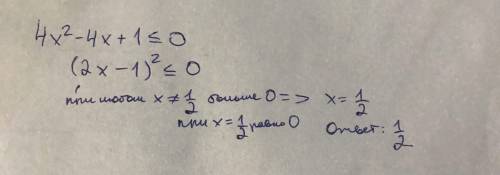 4x² - 4x + 1 ≤ 0
(2x - 1)² ≤ 0
при x ≠ 1/2 больше 0 => x = 1/2
при x = 1/2 равно 0 Ответ: 1/2